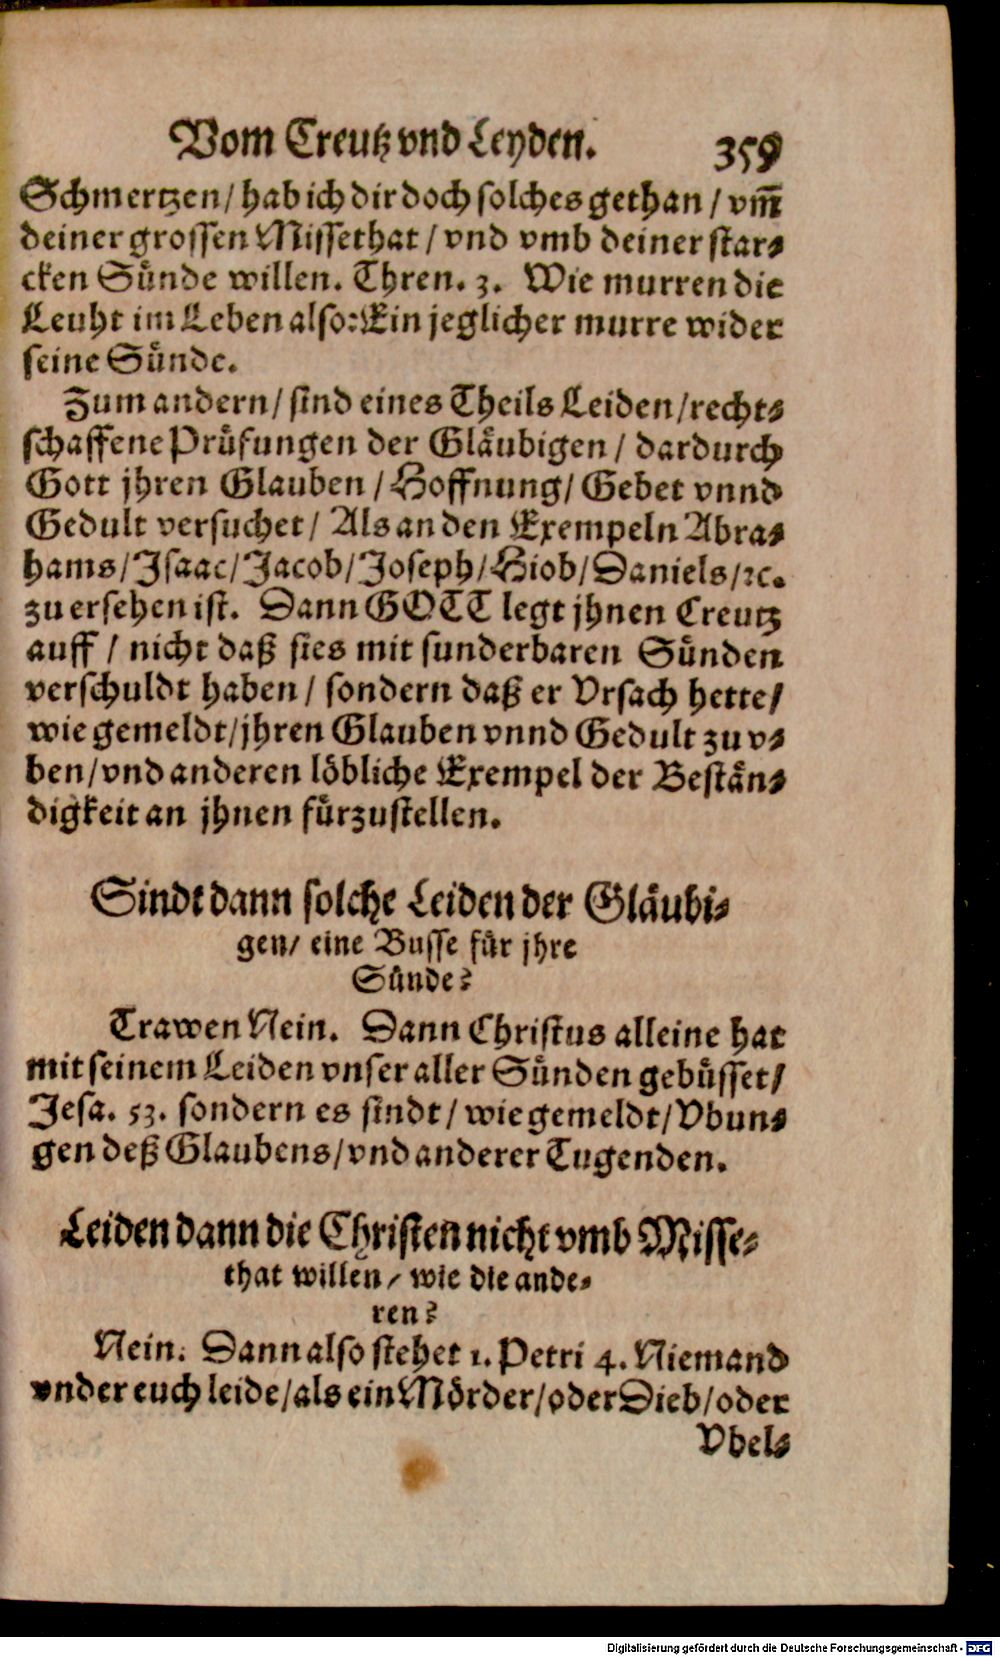 Vom Creutz vnd Leyden. 359
Schmertzen/ hab ich dir doch solches gethan/ vm̃
deiner grossen Missethat/ vnd vmb deiner star-
cken Sünde willen. Thren. 3. Wie murren die
Leuht im Leben also: Ein jeglicher murre wider
seine Sünde.
Zum andern/ sind eines Theils Leiden/ recht-
schaffene Prüfungen der Gläubigen/ dardurch
Gott jhren Glauben/ Hoffnung/ Gebet vnnd
Gedult versuchet/ Als an den Exempeln Abra-
hams/ Isaac/ Jacob/ Joseph/ Hiob/ Daniels/ ꝛc.
zu ersehen ist. Dann GOTT legt jhnen Creutz
auff/ nicht daß sies mit sunderbaren Sünden
verschuldt haben/ sondern daß er Vrsach hette/
wie gemeldt/ jhren Glauben vnnd Gedult zu v-
ben/ vnd anderen löbliche Exempel der Bestän-
digkeit an jhnen fürzustellen.
Sindt dann solche Leiden der Gläubi-
gen/ eine Busse für jhre
Sünde?
Trawen Nein. Dann Christus alleine hat
mit seinem Leiden vnser aller Sünden gebüsset/
Jesa. 53. sondern es sindt/ wie gemeldt/ Vbun-
gen deß Glaubens/ vnd anderer Tugenden.
Leiden dann die Christen nicht vmb Misse-
that willen/ wie die ande-
ren?
Nein. Dann also stehet 1. Petri 4. Niemand
vnder euch leide/ als ein Mörder/ oder Dieb/ oder
Vbel-
Digitalisierung gefördert durch die Deutsche Forschungsgemeinschaft - DFG